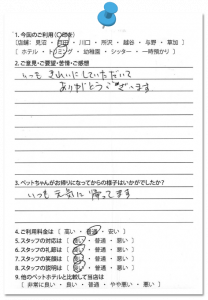 1.今回のご利用(○印を)
[店舗: 見沼 ・ 戸田 ・ 川口 ・ 所沢 ・ 越谷 ・ 与野 ・ 草加 ]
[ ホテル ・ トリミング ・ 幼稚園 ・ シッター ・ 一時預かり ]
2.ご意見・ご要望・苦情・ご感想
いつも きれいにしていただいて
ありがとうございます
3.ペットちゃんがお帰りになってからの様子はいかがでしたか?
いつも 元気に 帰ってます
4.ご利用料金は [ 高い ・ 普通 ・ 安い ]
5.スタッフの対応は [ 良い ・ 普通 ・ 悪い ]
6.スタッフの笑顔は [ 良い ・ 普通 ・ 悪い ]
8.スタッフの説明は [ 良い ・ 普通 ・ 悪い ]
9.他のペットホテルと比較して当店は
[ 非常に良い ・ 良い ・ 普通 ・ やや悪い ・ 悪い ]